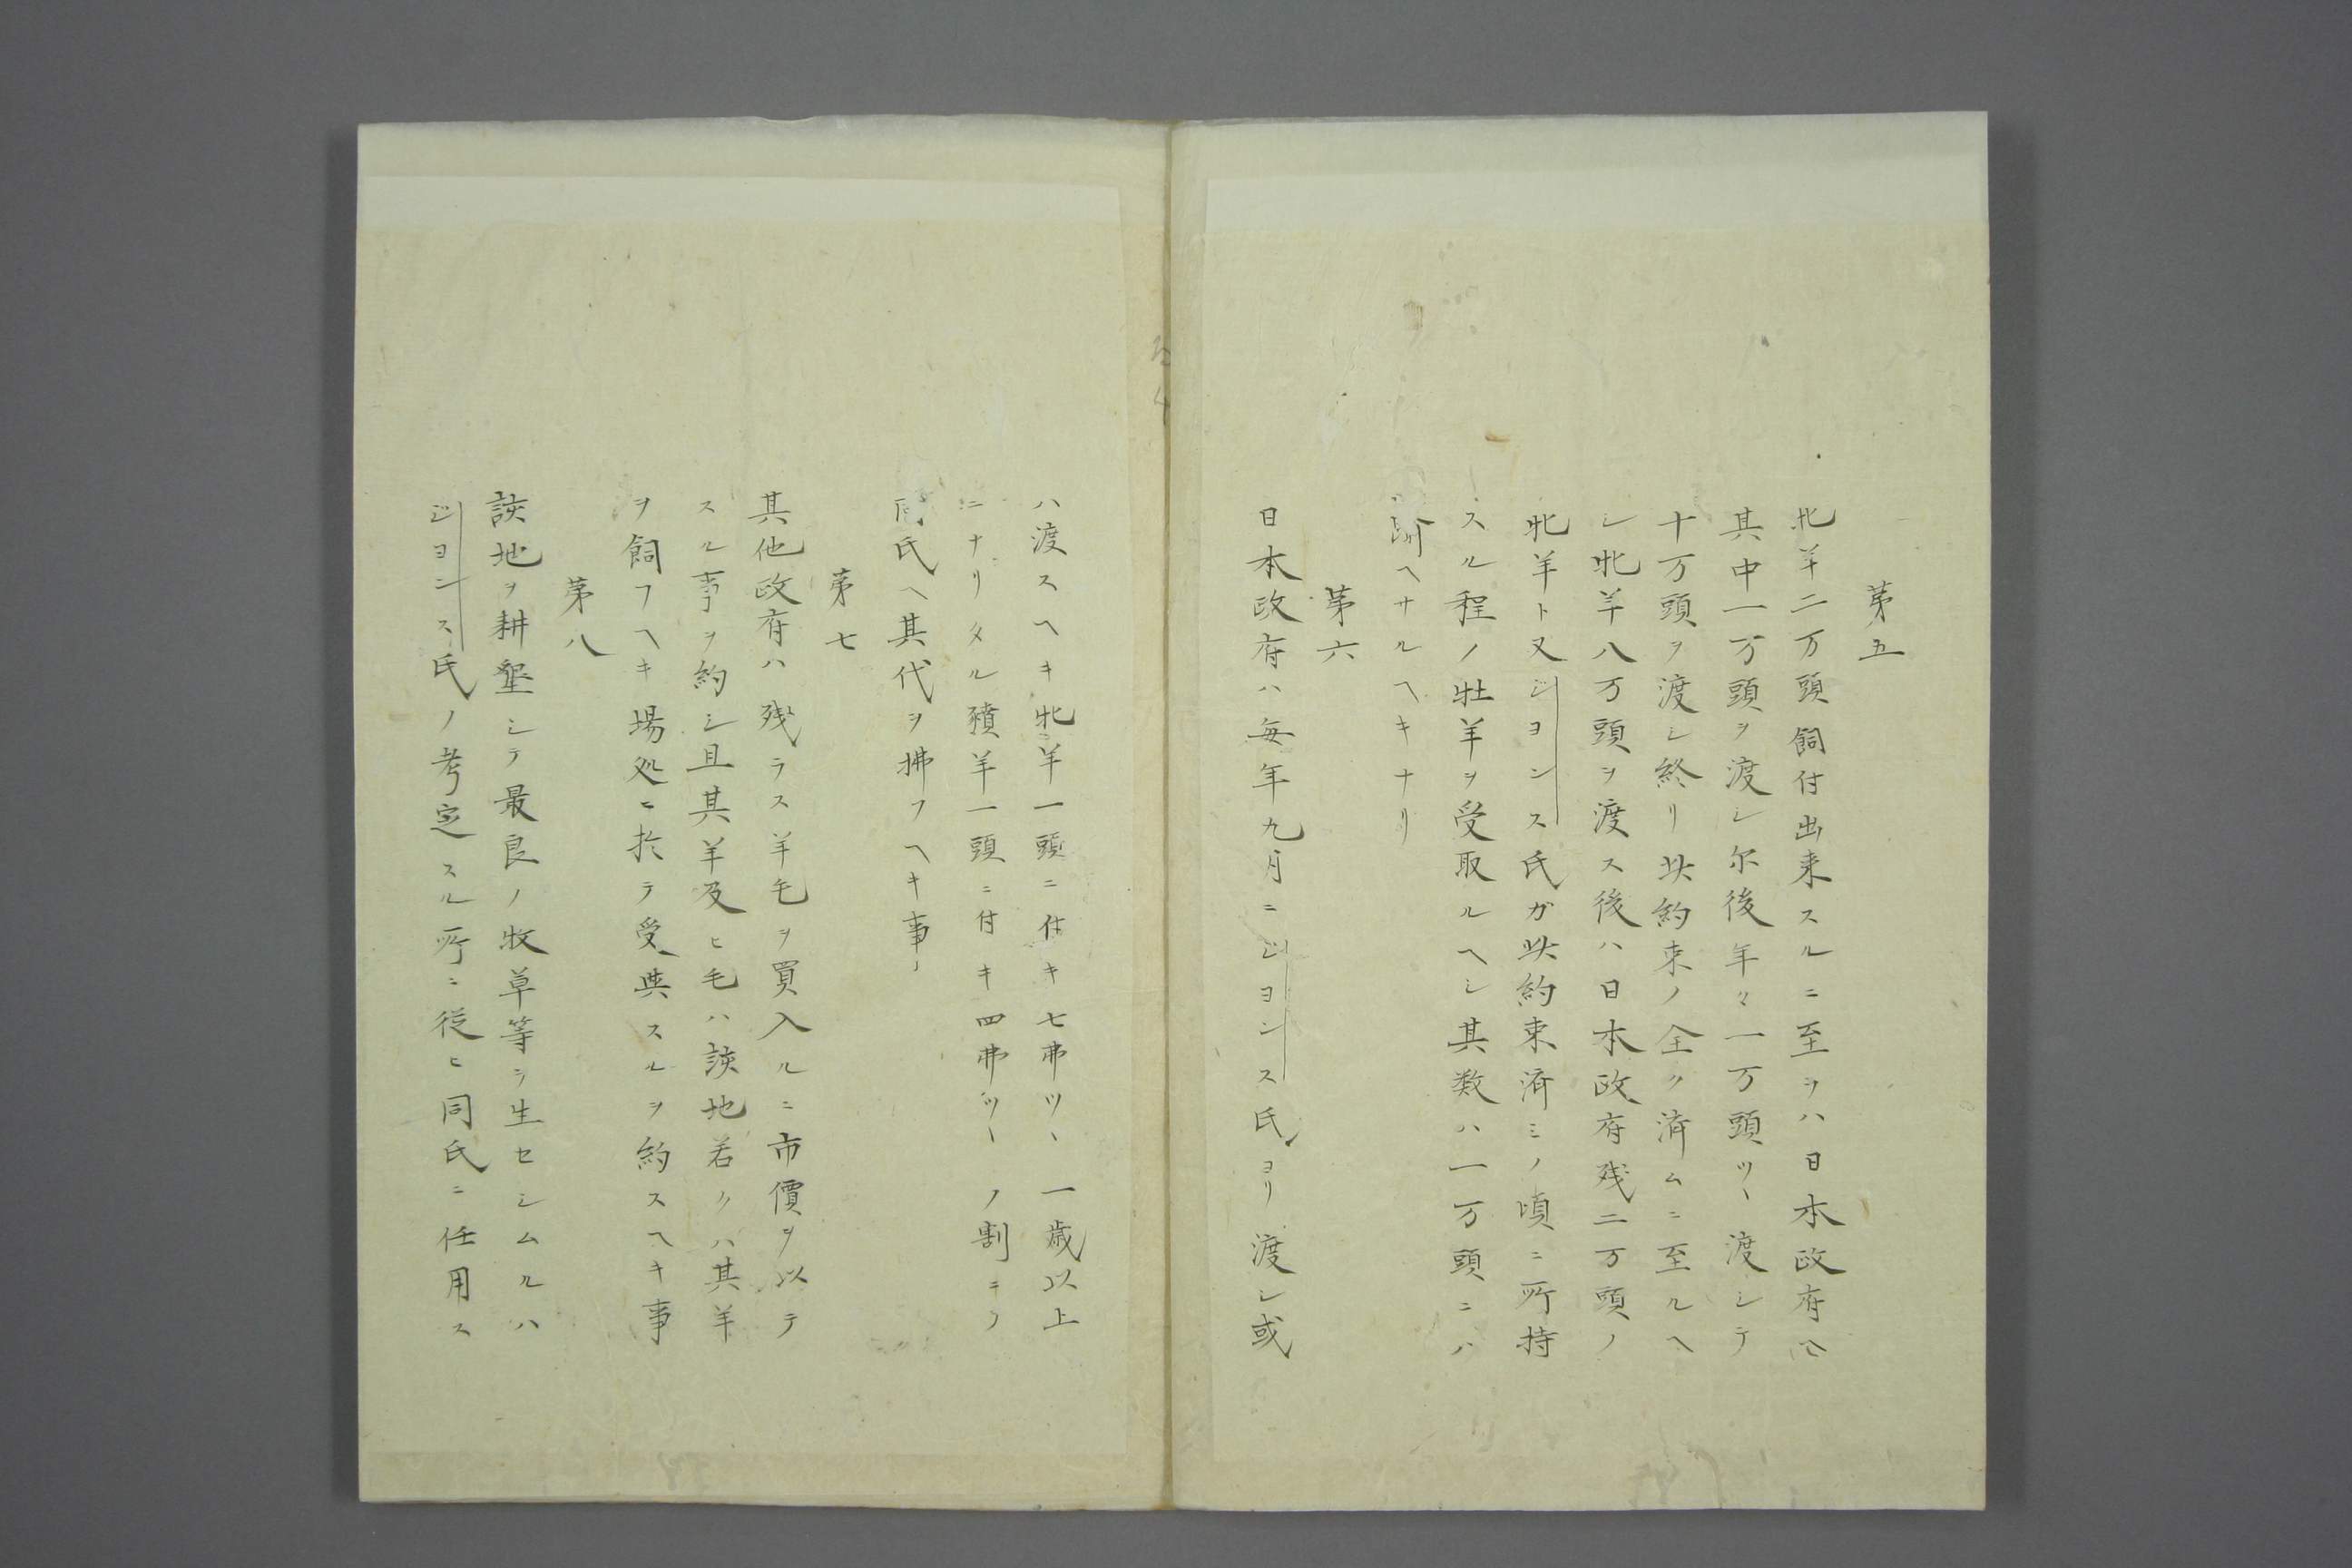 第五
牝羊二万頭飼付出来スルニ至ヲハ日本政府ヘ
其中一万頭ヲ渡シ尓後年々一万頭ツヽ渡シテ
十万頭ヲ渡シ終リ此約束ノ全ク済ムニ至ルヘ
シ牝羊八万頭ヲ渡ス後ハ日本政府残二万頭ノ
牝羊ト又ジヨンス氏ガ此約束済ミノ頃ニ所持
スル程ノ牡羊ヲ受取ルヘシ其数ハ一万頭ニハ
踰ヘナルヘキナリ
第六
日本政府ハ毎年九月ニジヨンス氏ヨリ渡シ或
ハ渡スヘキ牝羊一頭ニ付キ七弗ツヽ一歳以上
ニナリタル羊一頭ニ付キ四弗ツヽノ割ニテ
同氏ヘ其代ヲ拂フヘキ事
第七
其他政府ハ残ラス羊毛ヲ買入ルニ市價ヲ以テ
スル事ヲ約シ且其羊及ヒ毛ハ該地若クハ其羊
ヲ飼フヘキ場処ニ於テ受與スルヲ約スヘキ事
第八
該地ヲ耕墾シテ最良ノ牧草等ヲ生セシムルハ
ジヨンス氏ノ考定スル所ニ従ヒ同氏ニ任用ス